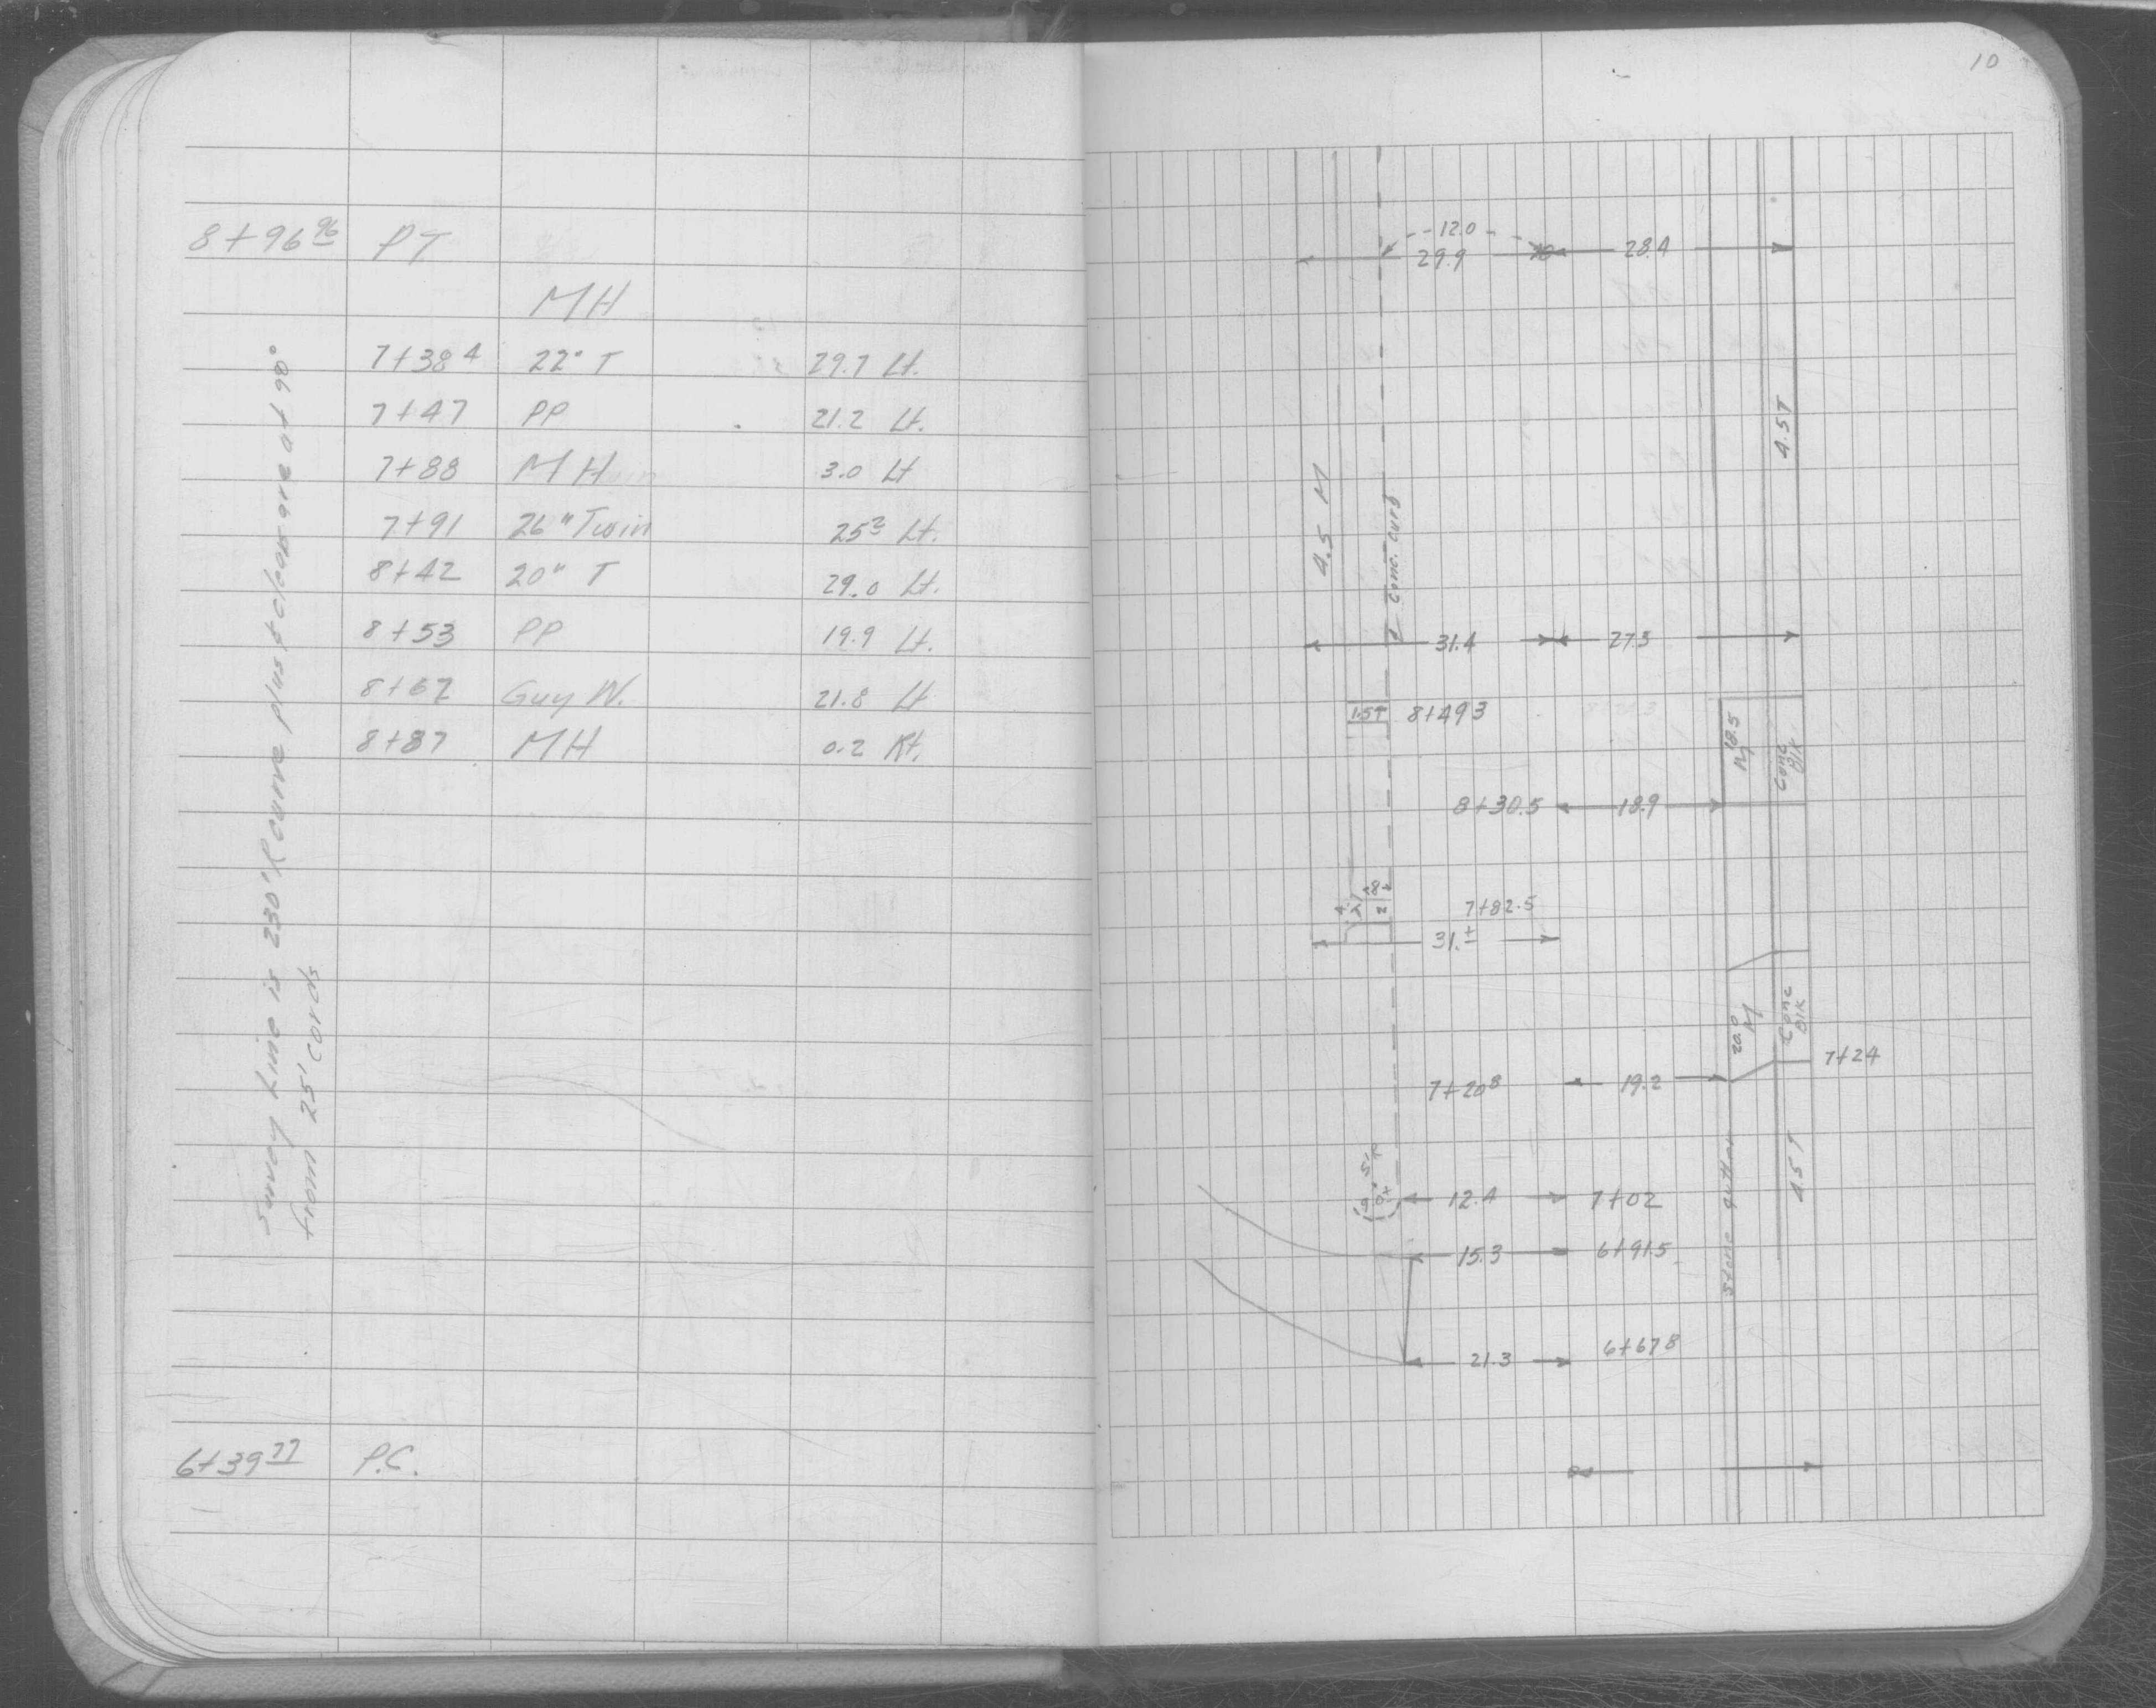 10
8+96 96 PT
MH
7+38 4 22" T 29.7 Lt.
7+47 PP 21.2 Lt.
7+88 MH 3.0 Lt
7+91 26" Twin 25 2 Lt.
8+42 20" T 29.0 Lt.
8+53 PP 19.9 Lt.
8+62 Guy W. 21.8 Lt
8+87 MH 0.2 Rt.
6+39 77 P.C.
Survey Line is 230' R curve plus + are at 90°
from 25' cords
12.0
29.9 28.4
4.5 M
Conc. curb
4.5T
31.4 27.5
1.5T 8+49 3
18.5
Conc
Blk
8+30.5 18.9
7+82.5
31.±
20.0
M
Conc
Blk
7+24
7+20 8 19.2
Stone gutter
4.5 T
12.4 7+02
15.3 6+91.5
21.3 6+67 8